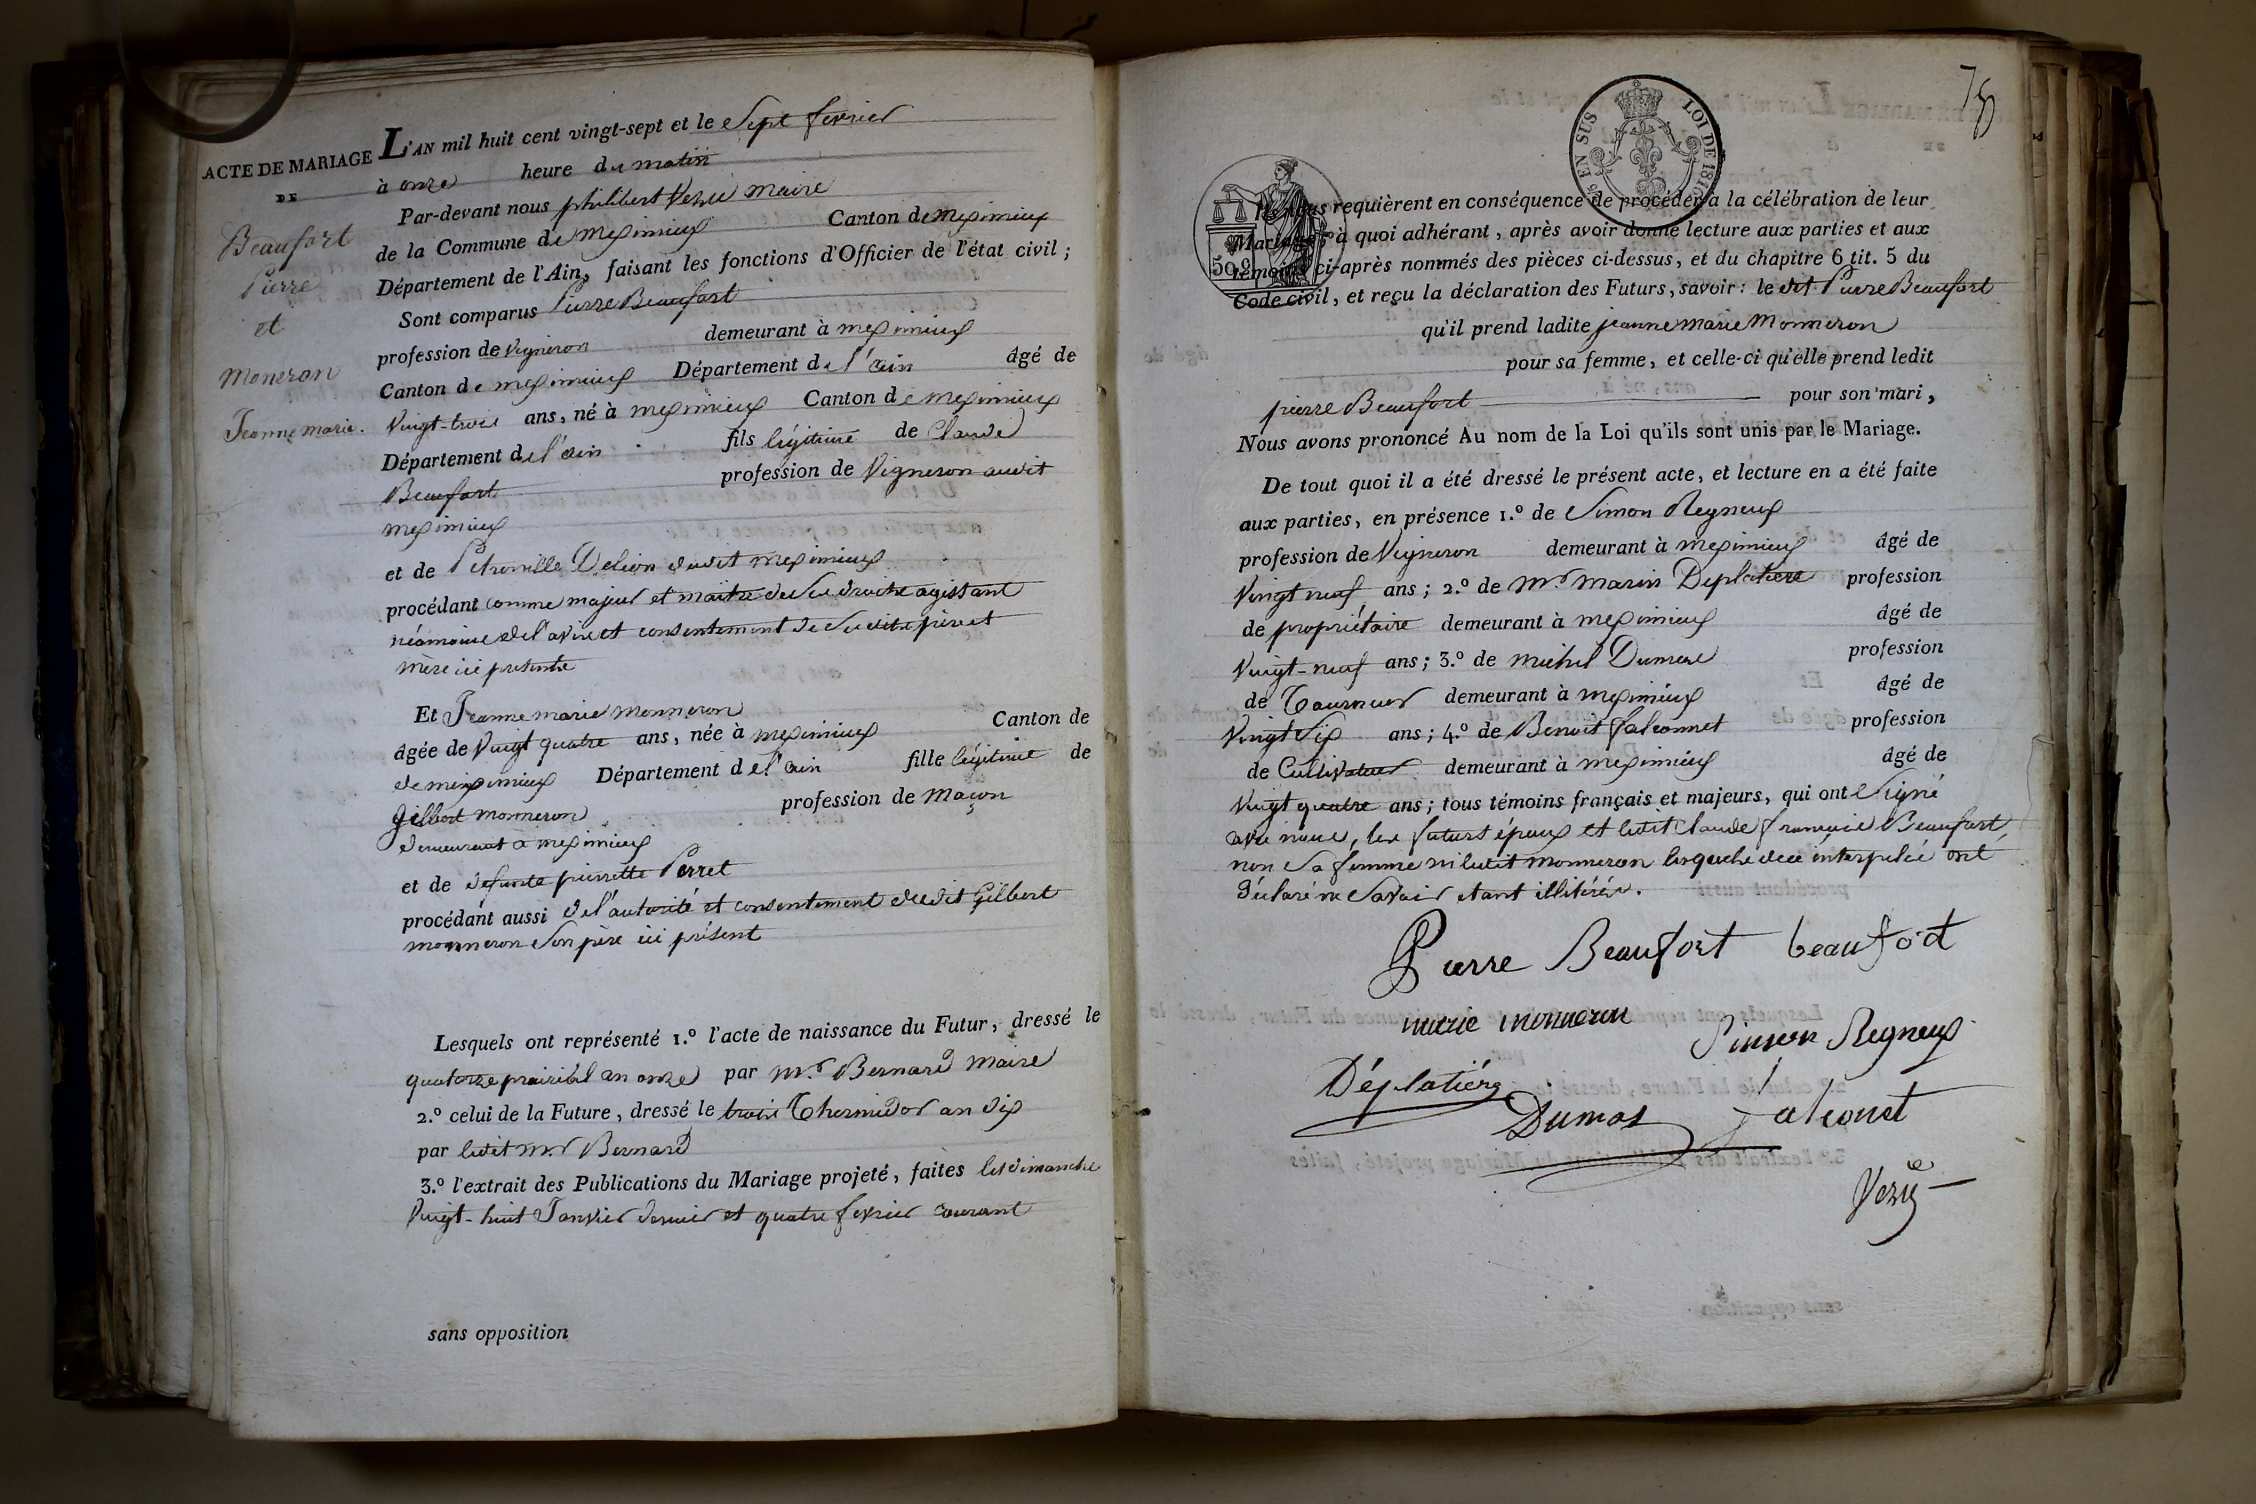 ACTE DE MARIAGE
DE
Beaufort
Pierre
et
Moneron
Jeanne marie.
L'AN mil huit cent vingt-sept et le Sept fevrier
à onze heure du matin
Par-devant nous philibert Vezu maire
de la Commune de meximieux Canton de meximieux
Département de l'Ain, faisant les fonctions d'Officier de l'état civil ;
Sont comparus Pierre Beaufort
profession de Vigneron demeurant à meximieux
Canton de meximieux Département de l'ain âgé de
Vingt-trois ans, né à meximieux Canton de meximieux
Département de l'ain fils légitime de Claude
Beaufort profession de Vigneron audit
meximieux
et de Petronille Delion dudit meximieux
procédant comme majeur et maitre de Ses droits agissant
néamoins de l'avis et consentement de Sesdits père et
mère ici présents
Et Jeanne marie monneron
âgée de Vingt quatre ans, née à meximieux Canton de
de meximieux Département de l'ain fille légitime de
gilbert monneron profession de Maçon
demeurant à meximieux
et de defunte pierrette Perret
procédant aussi de l'autorité et consentement dudit Gilbert
monneron Son père ici présent
Lesquels ont représenté 1.º l'acte de naissance du Futur, dressé le
quatorze prairial an onze par mr. Bernard maire
2.º celui de la Future, dressé le trois Thermidor an dix
par ledit mr Bernard
3.º l'extrait des Publications du Mariage projeté, faites les dimanche
Vingt-huit Janvier dernier et quatre fevrier courant
sans opposition
78
EN SUS LOI DE 1816
50 c
Ils nous requièrent en conséquence de procéder à la célébration de leur
Mariage ; à quoi adhérant, après avoir donné lecture aux parties et aux
témoins ci-après nommés des pièces ci-dessus, et du chapitre 6 tit. 5 du
Code civil, et reçu la déclaration des Futurs, savoir : le dit Pierre Beaufort
qu'il prend ladite jeanne marie Monneron
pour sa femme, et celle-ci qu'elle prend ledit
pierre Beaufort pour son mari,
Nous avons prononcé Au nom de la Loi qu'ils sont unis par le Mariage.
De tout quoi il a été dressé le présent acte, et lecture en a été faite
aux parties, en présence 1.º de Simon Regneux
profession de Vigneron demeurant à meximieux âgé de
Vingt neuf ans ; 2.º de mr. marin Deplatiere profession
de propriétaire demeurant à meximieux âgé de
Vingt-neuf ans ; 3.º de michel Dumas profession
de Tourneur demeurant à meximieux âgé de
Vingt Six ans ; 4.º de Benoit falconnet profession
de Cultivateur demeurant à meximieux âgé de
Vingt quatre ans ; tous témoins français et majeurs, qui ont Signé
avec nous, les futurs époux et ledit Claude françois Beaufort,
non Sa femme ni ledit monneron lesquels de ce interpelés ont
déclaré ne Savoir etant illitérés.
Pierre Beaufort beaufort
marie monneron
Simon Regneux
Déplatière
Dumas
falconet
Vezu